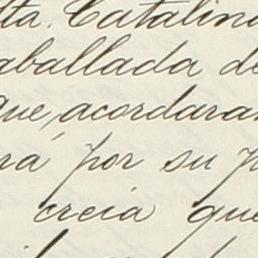 tta. Catalina
aballada de
que, acordaran
rá por su p
creía que